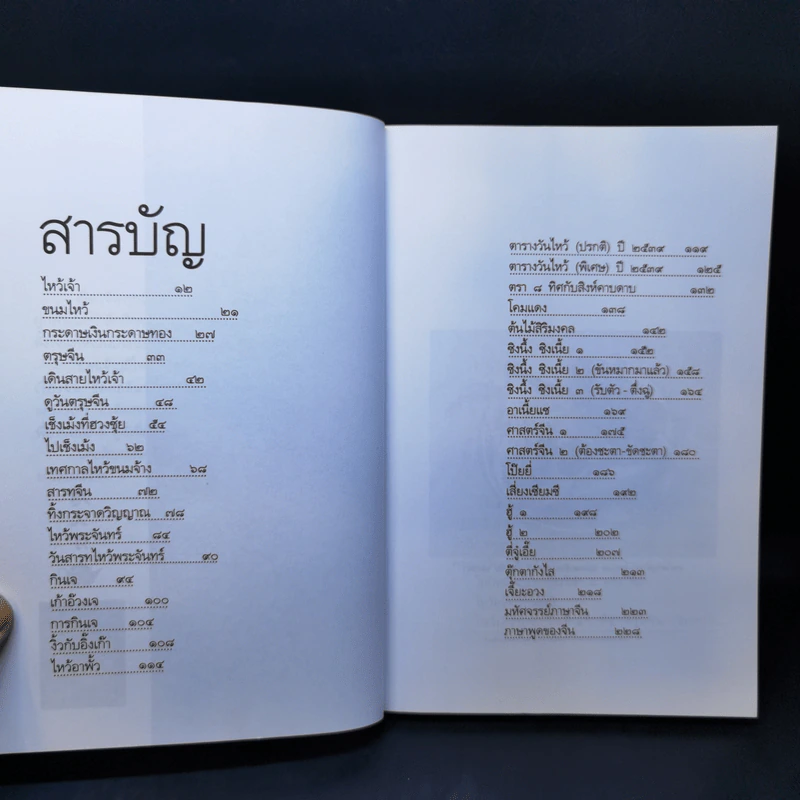 สารบัญ
ไหว้เจ้า ๑๒
ขนมไหว้ ๒๑
กระดาษเงินกระดาษทอง ๒๗
ตรุษจีน ๓๓
เดินสายไหว้เจ้า ๔๒
ดูวันตรุษจีน ๔๘
เช็งเม้งที่ฮวงซุ้ย ๕๔
ไปเช็งเม้ง ๖๒
เทศกาลไหว้ขนมจ้าง ๖๘
สารทจีน ๗๒
ทิ้งกระจาดวิญญาณ ๗๘
ไหว้พระจันทร์ ๘๔
วันสารทไหว้พระจันทร์ ๙๐
กินเจ ๙๔
เก้าอ๊วงเจ ๑๐๐
การกินเจ ๑๐๔
งิ้วกับอิ๊งเก๊า ๑๐๘
ไหว้อาพั้ว ๑๑๔
ตารางวันไหว้ (ปรกติ) ปี ๒๕๓๙ ๑๑๙
ตารางวันไหว้ (พิเศษ) ปี ๒๕๓๙ ๑๒๕
ตรา ๘ ทิศกับสิงห์คาบดาบ ๑๓๒
โคมแดง ๑๓๘
ต้นไม้สิริมงคล ๑๔๒
ซิงนึ้ง ซิงเนี้ย ๑ ๑๕๒
ซิงนึ้ง ซิงเนี้ย ๒ (ขันหมากมาแล้ว) ๑๕๘
ซิงนึ้ง ซิงเนี้ย ๓ (รับตัว - ตึ่งฉู่) ๑๖๔
อาเนี้ยแซ ๑๖๙
ศาสตร์จีน ๑ ๑๗๕
ศาสตร์จีน ๒ (ต้องชะตา-ขัดชะตา) ๑๘๐
โป๊ยยี่ ๑๘๖
เสี่ยงเซียมซี ๑๙๒
ฮู้ ๑ ๑๙๘
ฮู้ ๒ ๒๐๒
ตี่จู่เอี๊ย ๒๐๗
ตุ๊กตากังไส ๒๑๓
เจี๊ยะฮวง ๒๑๘
มหัศจรรย์ภาษาจีน ๒๒๓
ภาษาพูดของจีน ๒๒๘